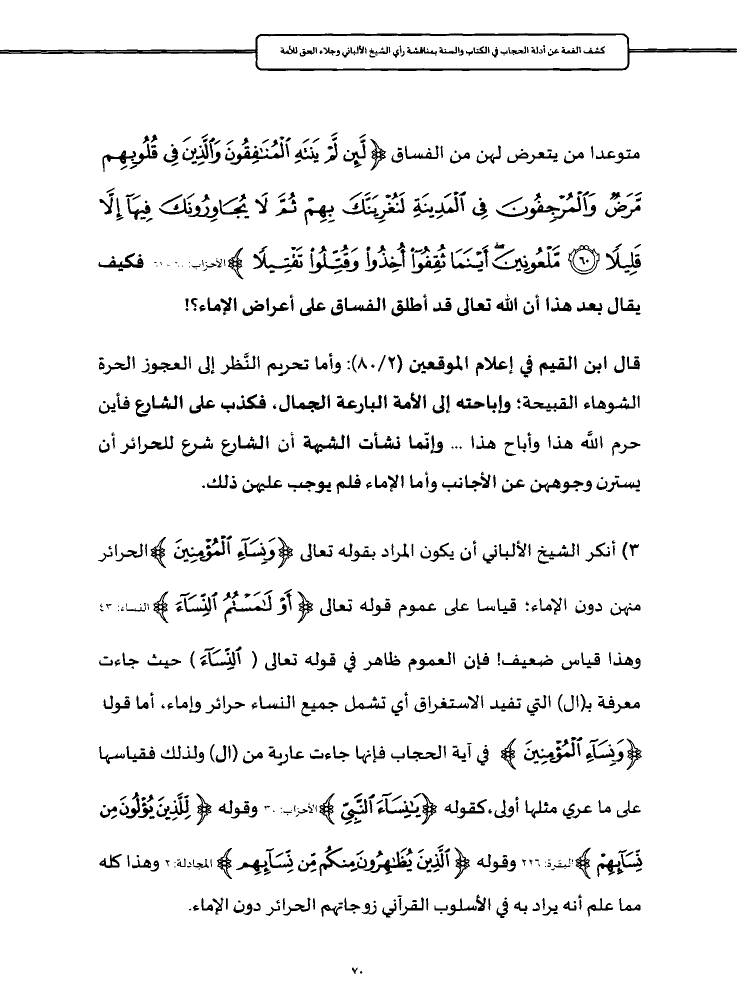 كشف الغمة عن أدلة الحجاب في الكتاب والسنة بمناقشة رأي الشيخ الألباني وجلاء الحق للأمة
متوعدا من يتعرض لهن من الفساق ﴿ لَّئِن لَّمْ يَنتَهِ الْمُنَافِقُونَ وَالَّذِينَ فِي قُلُوبِهِم
مَّرَضٌ وَالْمُرْجِفُونَ فِي الْمَدِينَةِ لَنُغْرِيَنَّكَ بِهِمْ ثُمَّ لَا يُجَاوِرُونَكَ فِيهَا إِلَّا
قَلِيلًا ۝٦٠ مَّلْعُونِينَ ۖ أَيْنَمَا ثُقِفُوا أُخِذُوا وَقُتِّلُوا تَقْتِيلًا ﴾ الأحزاب: ٦٠ - ٦١ فكيف
يقال بعد هذا أن الله تعالى قد أطلق الفساق على أعراض الإماء؟!
قال ابن القيم في إعلام الموقعين (٨٠/٢): وأما تحريم النَّظر إلى العجوز الحرة
الشوهاء القبيحة؛ وإباحته إلى الأمة البارعة الجمال، فكذب على الشارع فأين
حرم اللَّه هذا وأباح هذا ... وإنّما نشأت الشبهة أن الشارع شرع للحرائر أن
يسترن وجوههن عن الأجانب وأما الإماء فلم يوجب عليهن ذلك.
٣) أنكر الشيخ الألباني أن يكون المراد بقوله تعالى ﴿ وَنِسَاءِ الْمُؤْمِنِينَ ﴾ الحرائر
منهن دون الإماء؛ قياسا على عموم قوله تعالى ﴿ أَوْ لَامَسْتُمُ النِّسَاءَ ﴾ النساء: ٤٣
وهذا قياس ضعيف! فإن العموم ظاهر في قوله تعالى ( النِّسَاءَ ) حيث جاءت
معرفة بـ(ال) التي تفيد الاستغراق أي تشمل جميع النساء حرائر وإماء، أما قوله
﴿ وَنِسَاءِ الْمُؤْمِنِينَ ﴾ في آية الحجاب فإنها جاءت عارية من (ال) ولذلك فقياسها
على ما عري مثلها أولى،كقوله ﴿ يَا نِسَاءَ النَّبِيِّ ﴾ الأحزاب: ٣٠ وقوله ﴿ لِّلَّذِينَ يُؤْلُونَ مِن
نِّسَائِهِمْ ﴾ البقرة: ٢٢٦ وقوله ﴿ الَّذِينَ يُظَاهِرُونَ مِنكُم مِّن نِّسَائِهِم ﴾ المجادلة: ٢ وهذا كله
مما علم أنه يراد به في الأسلوب القرآني زوجاتهم الحرائر دون الإماء.
٧٠